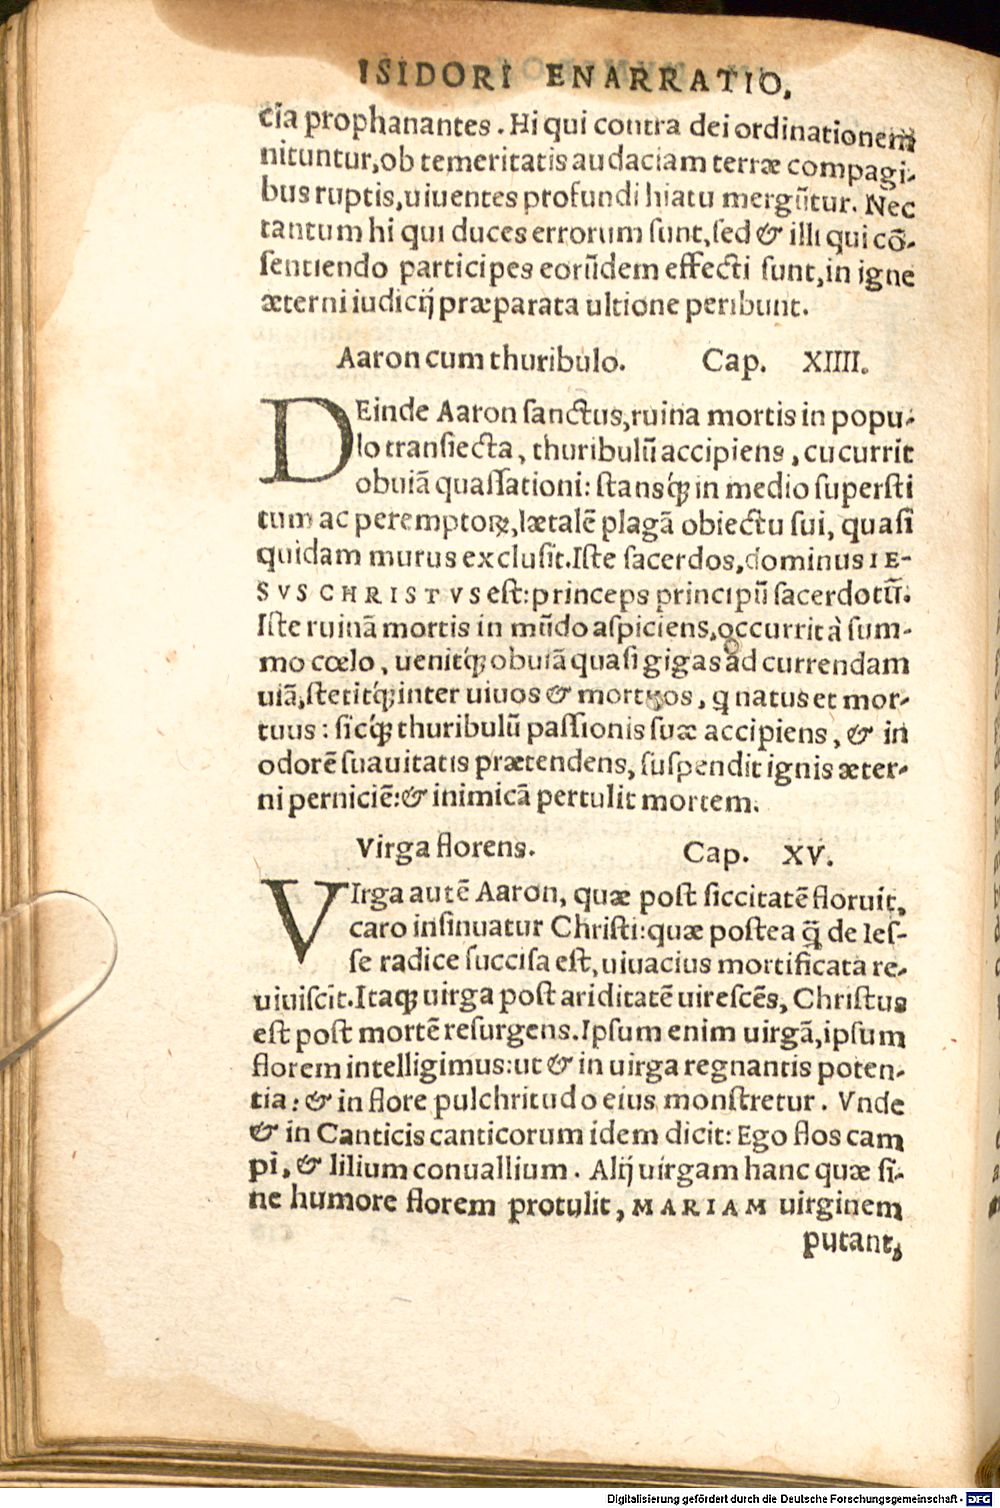 ISIDORI ENARRATIO.
cia prophanantes. Hi qui contra dei ordinationem
nituntur, ob temeritatis audaciam terræ compagi-
bus ruptis, uiuentes profundi hiatu mergũtur. Nec
tantum hi qui duces errorum sunt, sed & illi qui cõ-
sentiendo participes eorũdem effecti sunt, in igne
æterni iudicij præparata ultione peribunt.
Aaron cum thuribulo. Cap. XIIII.
DEinde Aaron sanctus, ruina mortis in popu-
lo transiecta, thuribulũ accipiens, cucurrit
obuiã quassationi: stansq́ꝫ in medio supersti
tum ac peremptoꝝ, lætalẽ plagã obiectu sui, quasi
quidam murus exclusit. Iste sacerdos, dominus IE-
SVS CHRISTVS est: princeps principũ sacerdotũ.
Iste ruinã mortis in mũdo aspiciens, occurrit à sum-
mo cœlo, uenitq́ꝫ obuiã quasi gigas ad currendam
uiã, stetitq́ꝫ inter uiuos & mortuos, ꝗ natus et mor-
tuus: sicq́ꝫ thuribulũ passionis suæ accipiens, & in
odorẽ suauitatis prætendens, suspendit ignis æter-
ni perniciẽ: & inimicã pertulit mortem.
Virga florens. Cap. XV.
VIrga autẽ Aaron, quæ post siccitatẽ floruit,
caro insinuatur Christi: quæ postea q̃ de Ies-
se radice succisa est, uiuacius mortificata re-
uiuiscit. Itaqꝫ uirga post ariditatẽ uirescẽs, Christus
est post mortẽ resurgens. Ipsum enim uirgã, ipsum
florem intelligimus: ut & in uirga regnantis poten-
tia: & in flore pulchritudo eius monstretur. Vnde
& in Canticis canticorum idem dicit: Ego flos cam
pi, & lilium conuallium. Alij uirgam hanc quæ si-
ne humore florem protulit, MARIAM uirginem
putant,
Digitalisierung gefördert durch die Deutsche Forschungsgemeinschaft - DFG